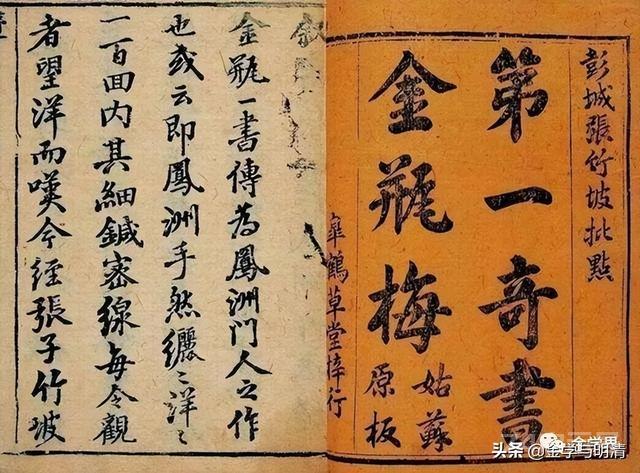 彭城張竹坡批點
第一奇書
金瓶梅
姑蘇
原板
皐鶴草堂梓行
敘
金瓶一書傳為鳳洲門人之作
也或云即鳳洲手然纚〻洋〻
一百回內其細鍼密線每令觀
者望洋而嘆今經張子竹坡
金学界
头条 @金学与明清